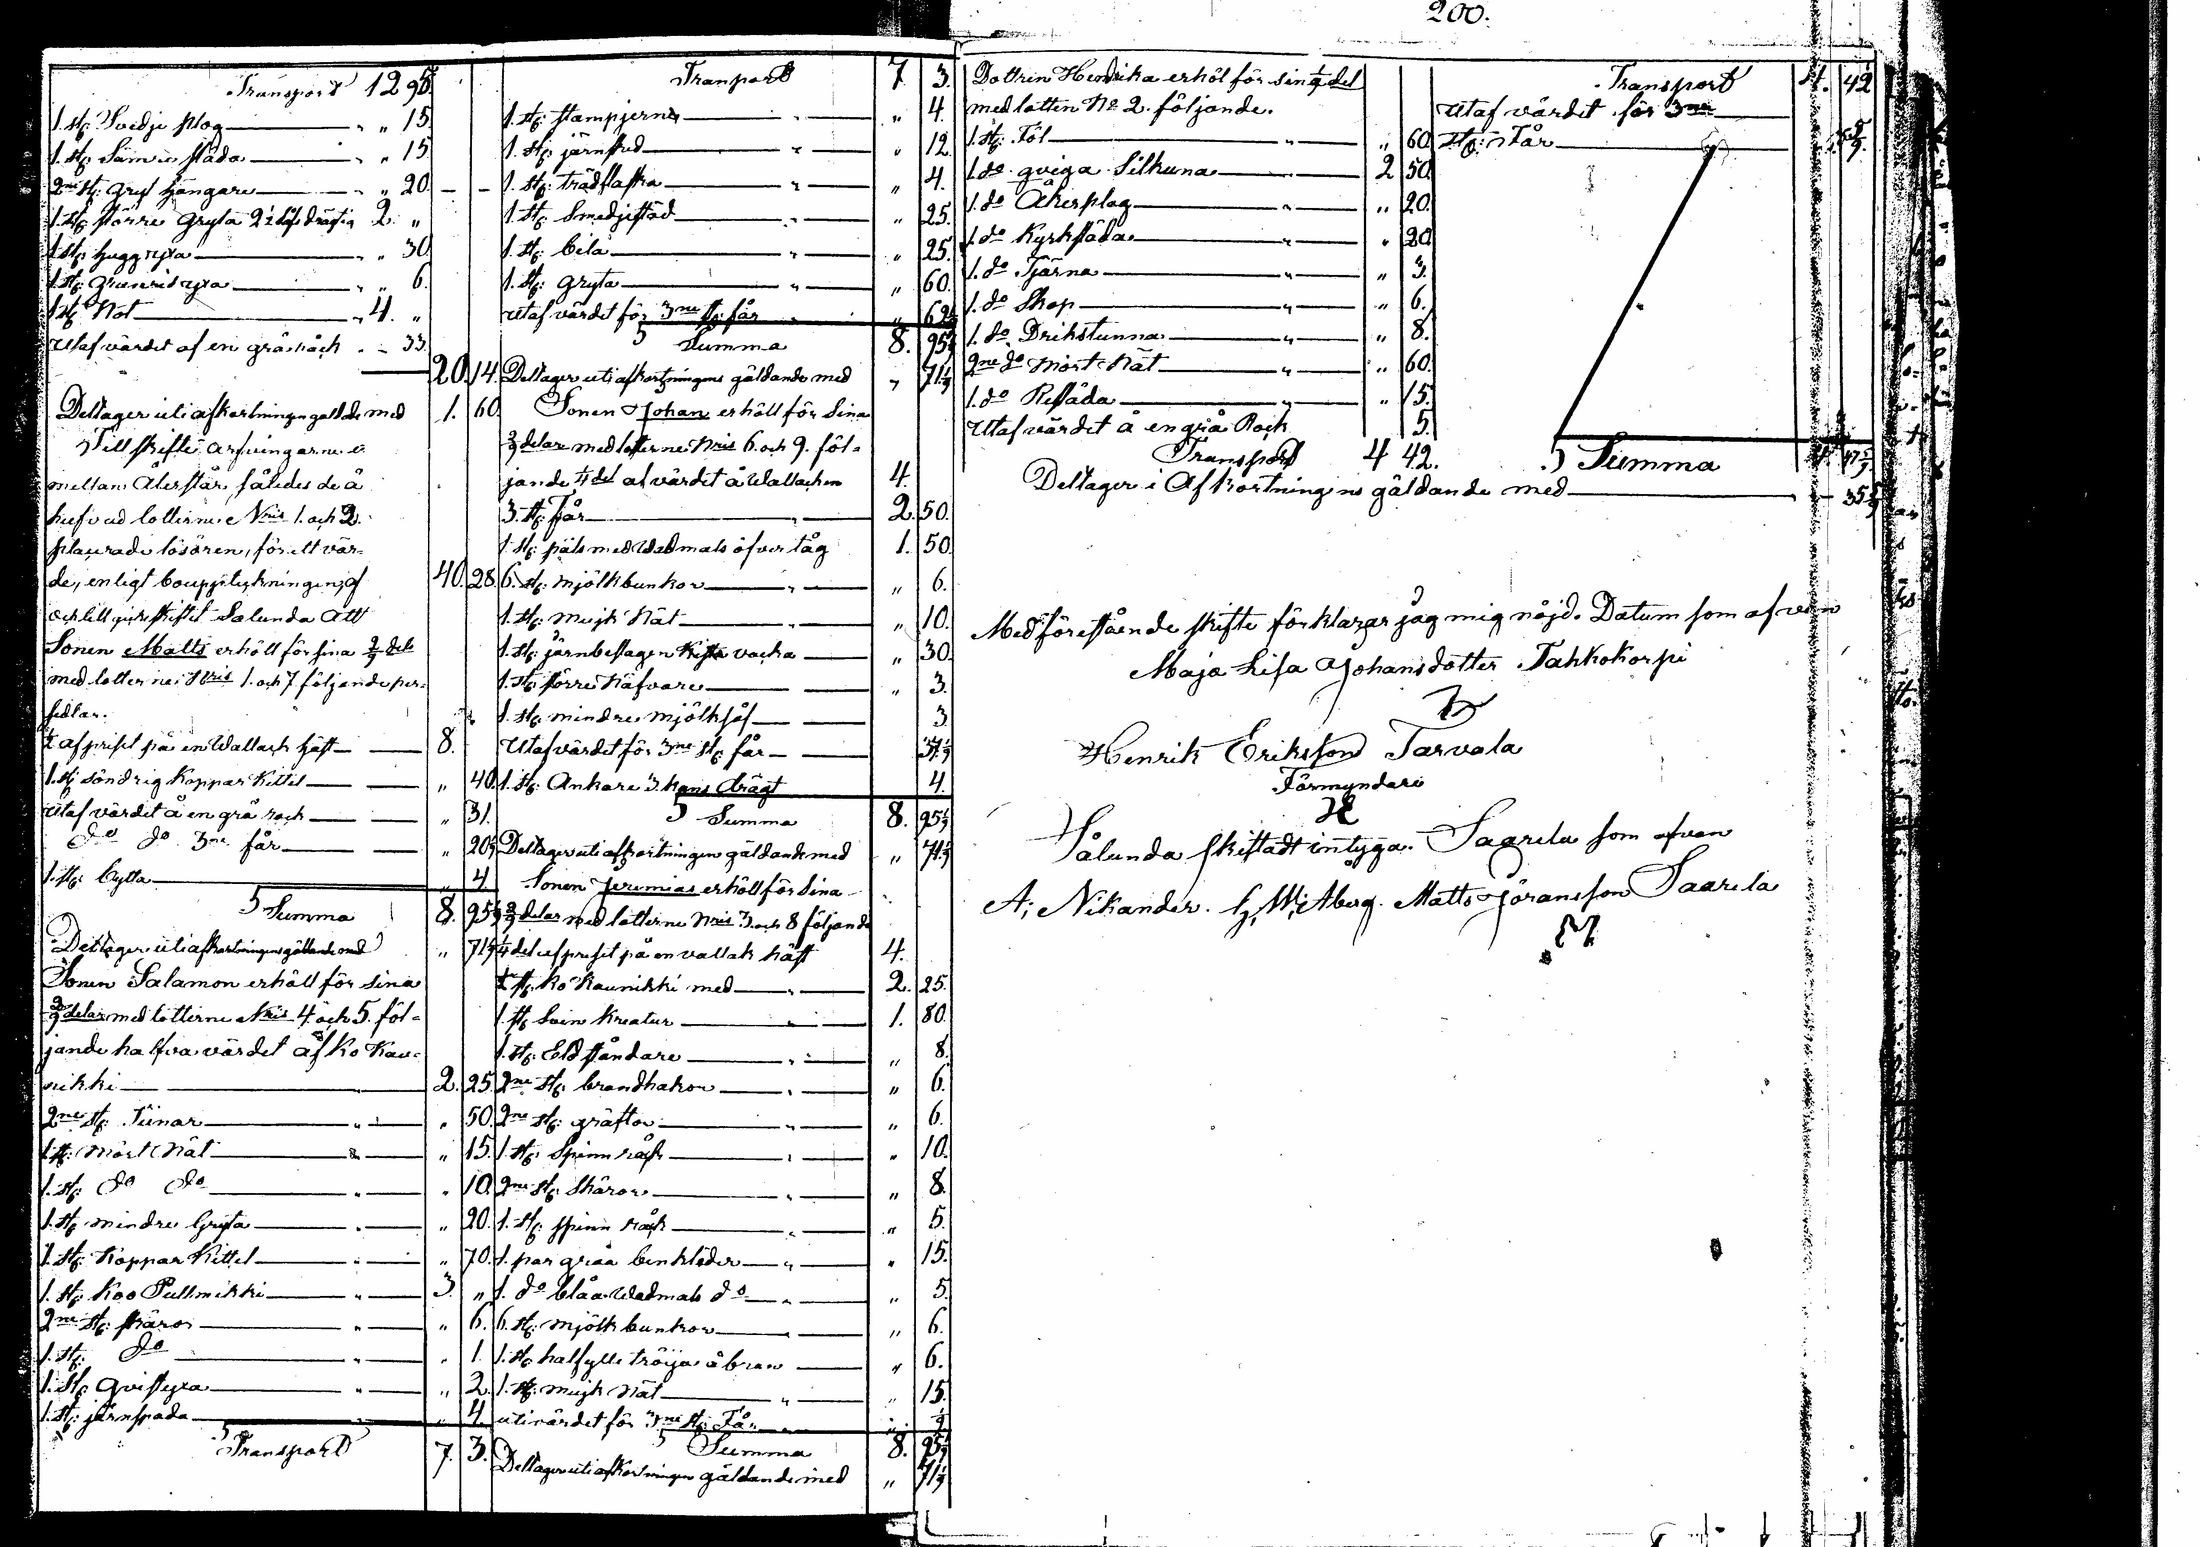 200.
Transport 12 95
1. st: Svedje plog " 15.
1. st: släda " 15
2ne st: gryt hängare " 20.
1. st: större Gryta 2½ drägtig 2. "
1. st: huggyxa " 30
1. st: yxa " 6.
1 st: Nöt 4. "
Utaf värdet af en grå råck - 33.
20. 14.
Deltager uti afkortningen gäldande med 1. 60.
Till skifte arfvingarne e
mellan Återstår således de å
hufvud lotterne Nris 1. och 2.
placerade lösören, för ett vär-
de, enligt bouppteckningen, af 40. 28.
och tillgick skiftet Salunda att
Sonen Matts erhöll för sina 2/9 dels
med lotterne Nris 1. och 7 följande per-
sedlar.
½ af priset på en Wallack häst 8.
1. st: söndrig Koppar Kittel " 40.
Utaf värdet å en grå rock " 31.
do do 3ne får " 20
1. st: bytta " 4
Summa 8. 95
Deltager uti afkortningens gäldande med " 71
Sonen Salamon erhöll för sina
2/9 delar med lotterne Nris 4 och 5. föl-
jande halfva värdet af Ko Kau-
nikki 2. 25.
2ne st: Tünar " 50.
1. st: mört Nät " 15.
1. st: do do " 10.
1. st: mindre Gryta " 20.
1. st: Koppar Kittel " 70.
1. st: Koo Pullmikki 3. "
2ne st: skäror " 6.
1. st: do " 1.
1. st: qvistyxa " 2.
1. st: järnspada " 4.
Transport 7. 3.
Transport 7 3.
1. st: stampjerne " 4.
1. st: järnstud " 12.
1. st: trädflaska " 4.
1. st: Smedjestäd " 25.
1. st: bila " 25.
1. st: gryta " 60.
Utaf värdet för 3ne st: får " 62
Summa 8. 95
Deltager uti afkortningens gäldande med " 71
Sonen Johan erhöll för Sina
2/9 delar med lotterne Nris 6. och 9. föl-
jande ¼ del af värdet å Wallachen 4.
3. st: får 2. 50.
1. st: päls med Wadmals öfver tåg 1. 50.
6. st: mjölkbunkor " 6.
1. st: mujk Nät " 10.
1. st: järnbeslagen Kista vacka " 30.
1. st: större Näfvare " 3.
1. st: mindre mjölksåf 3
Utaf värdet för 3ne st: får
1. st: Ankare 3. kans drägt 4.
Summa 8. 95
Deltager uti afkortningen gäldande med " 71
Sonen Jeremias erhöll för Sina
2/9 delar med lotterne Nris 3. och 8 följande
¼ del af priset på en vallak häst 4.
½ st: Ko Kaunikki med 2. 25.
1. st: Svin Kreatur 1. 80.
1. st: Eld " 8.
2ne st: brandhakar " 6.
2ne st: gräftor " 6.
1. st: Spinn råck " 10.
2ne st: Skäror " 8.
1. st: spinn råck " 5.
1. par gråa benkläder " 15.
1. do blåa Wadmals do " 5.
6. st: mjölk bunkor " 6.
1. st: halfylle tröija å bruu " 6.
1. st: mujk Nät " 15.
uti värdet för 3ne st: Får
Summa 8. 95
Deltager uti afkortningen gäldande med " 71
Dottren Hendrika erhöl för sin 1/9 del
med lotten No 2. följande.
1. st: Föl " 60.
1. do qviga Silkuna 2 50.
1. do Åkerplog " 20.
1. do Kyrksläda " 20
1. do Tjärna " 3.
1. do Skop " 6.
1. do Drikstunna " 8.
2ne do mört Nät " 60.
1. do Resläda " 15.
Utaf värdet å en grå Rock 5.
Transport 4 42.
Transport 4. 42
Utaf värdet för 3ne
st: Får
Summa 4.
Deltager i Afkortningens gäldande med 35
Med förestående skifte förklarar jag mig nöjd. Datum som ofvan
Maja Lisa Johansdotter Tahkokorpi
Henrik Eriksson Tarvola
Förmyndare
Sålunda skiftadt intyga. Saarela som ofvan
A. Nikander. G. W. Aberg. Matts Jöransson Saarela